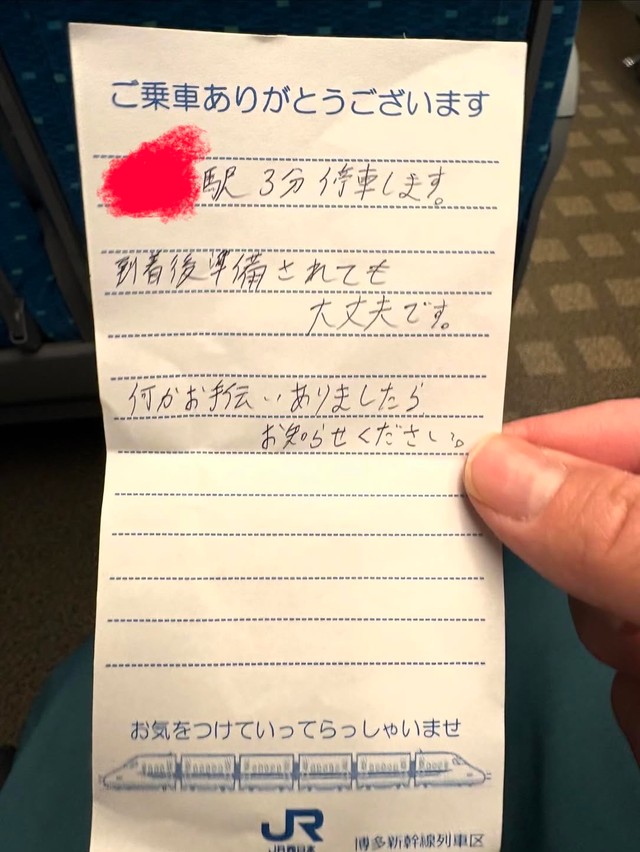 ご乗車ありがとうございます
駅 3分 停車します。
到着後準備されても
大丈夫です。
何かお手伝いありましたら
お知らせください。
お気をつけていってらっしゃいませ
JR
JR西日本
博多新幹線列車区